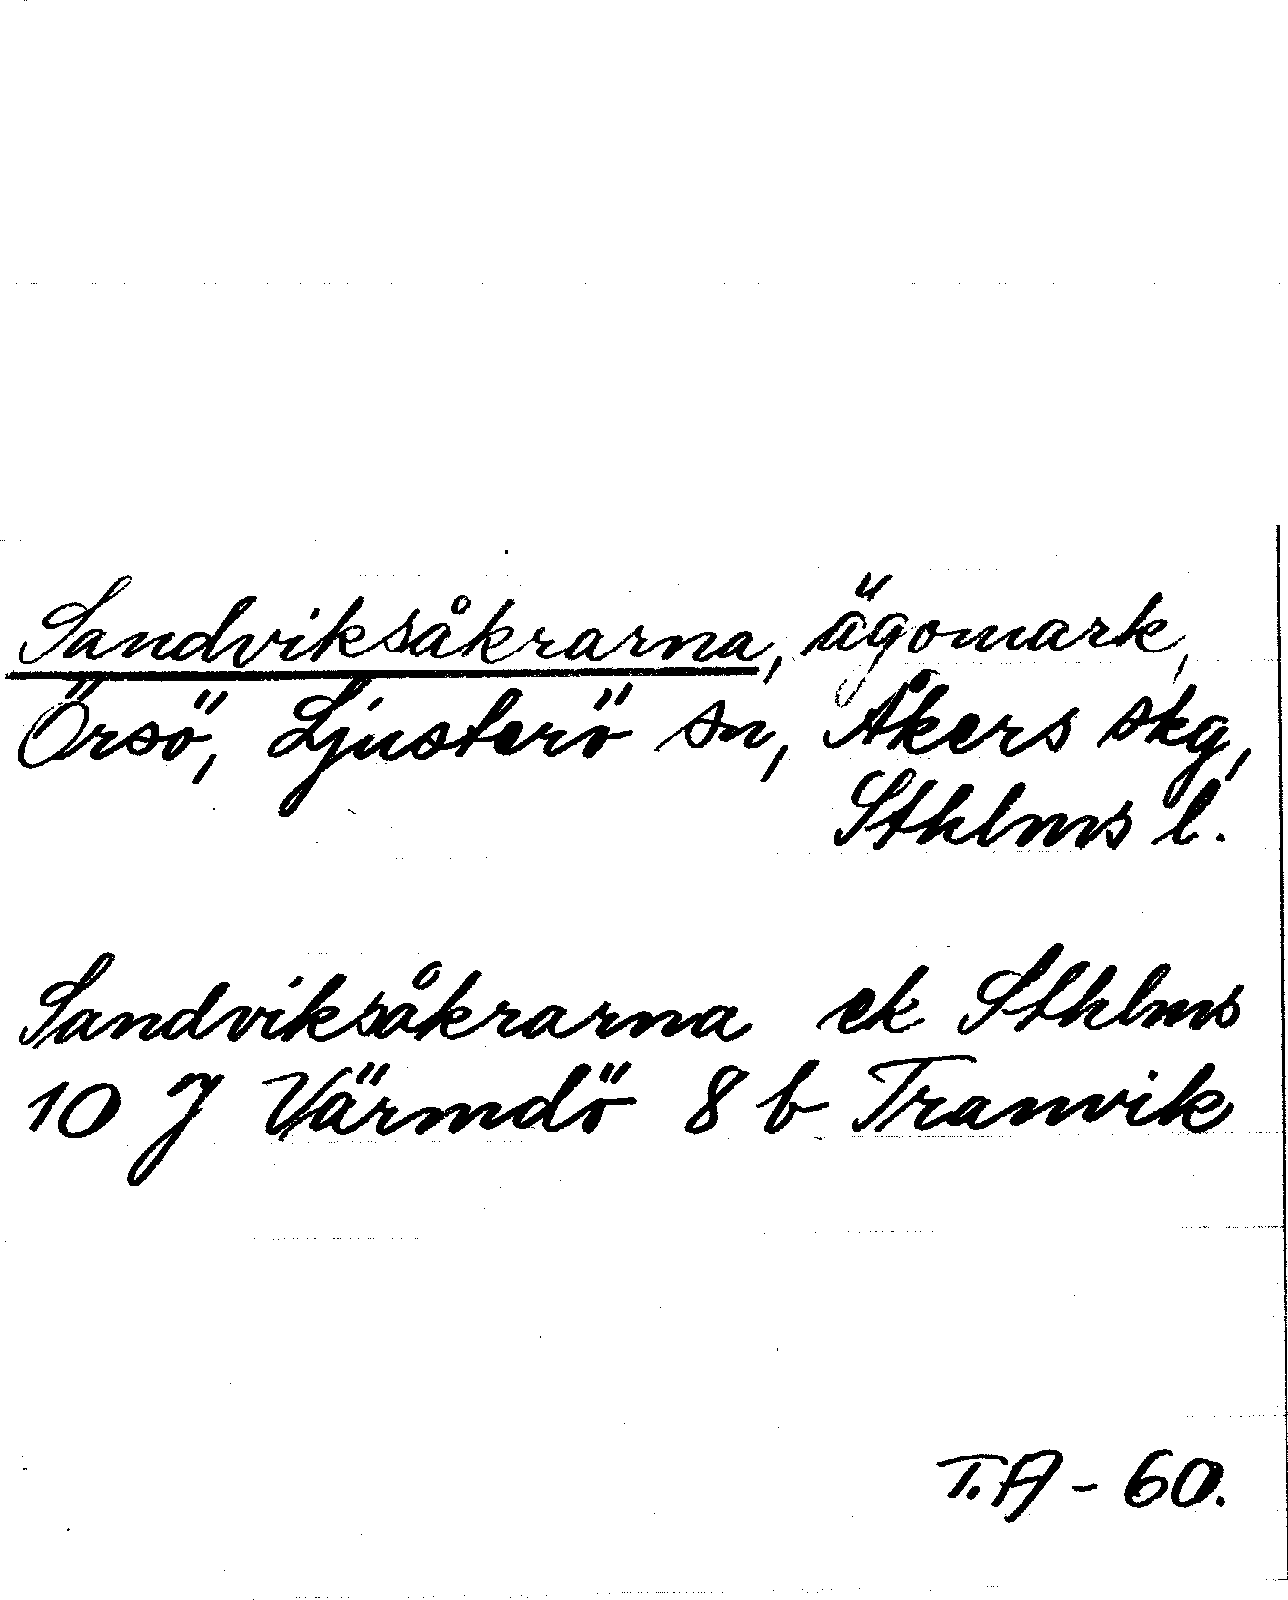 Sandviksåkrarna, ägomark,
Örsö, Ljusterö sn, Åkers skg,
Sthlms l.
Sandviksåkrarna ek Sthlms
10 J Värmdö 8 b Tranvik
T.A - 60.